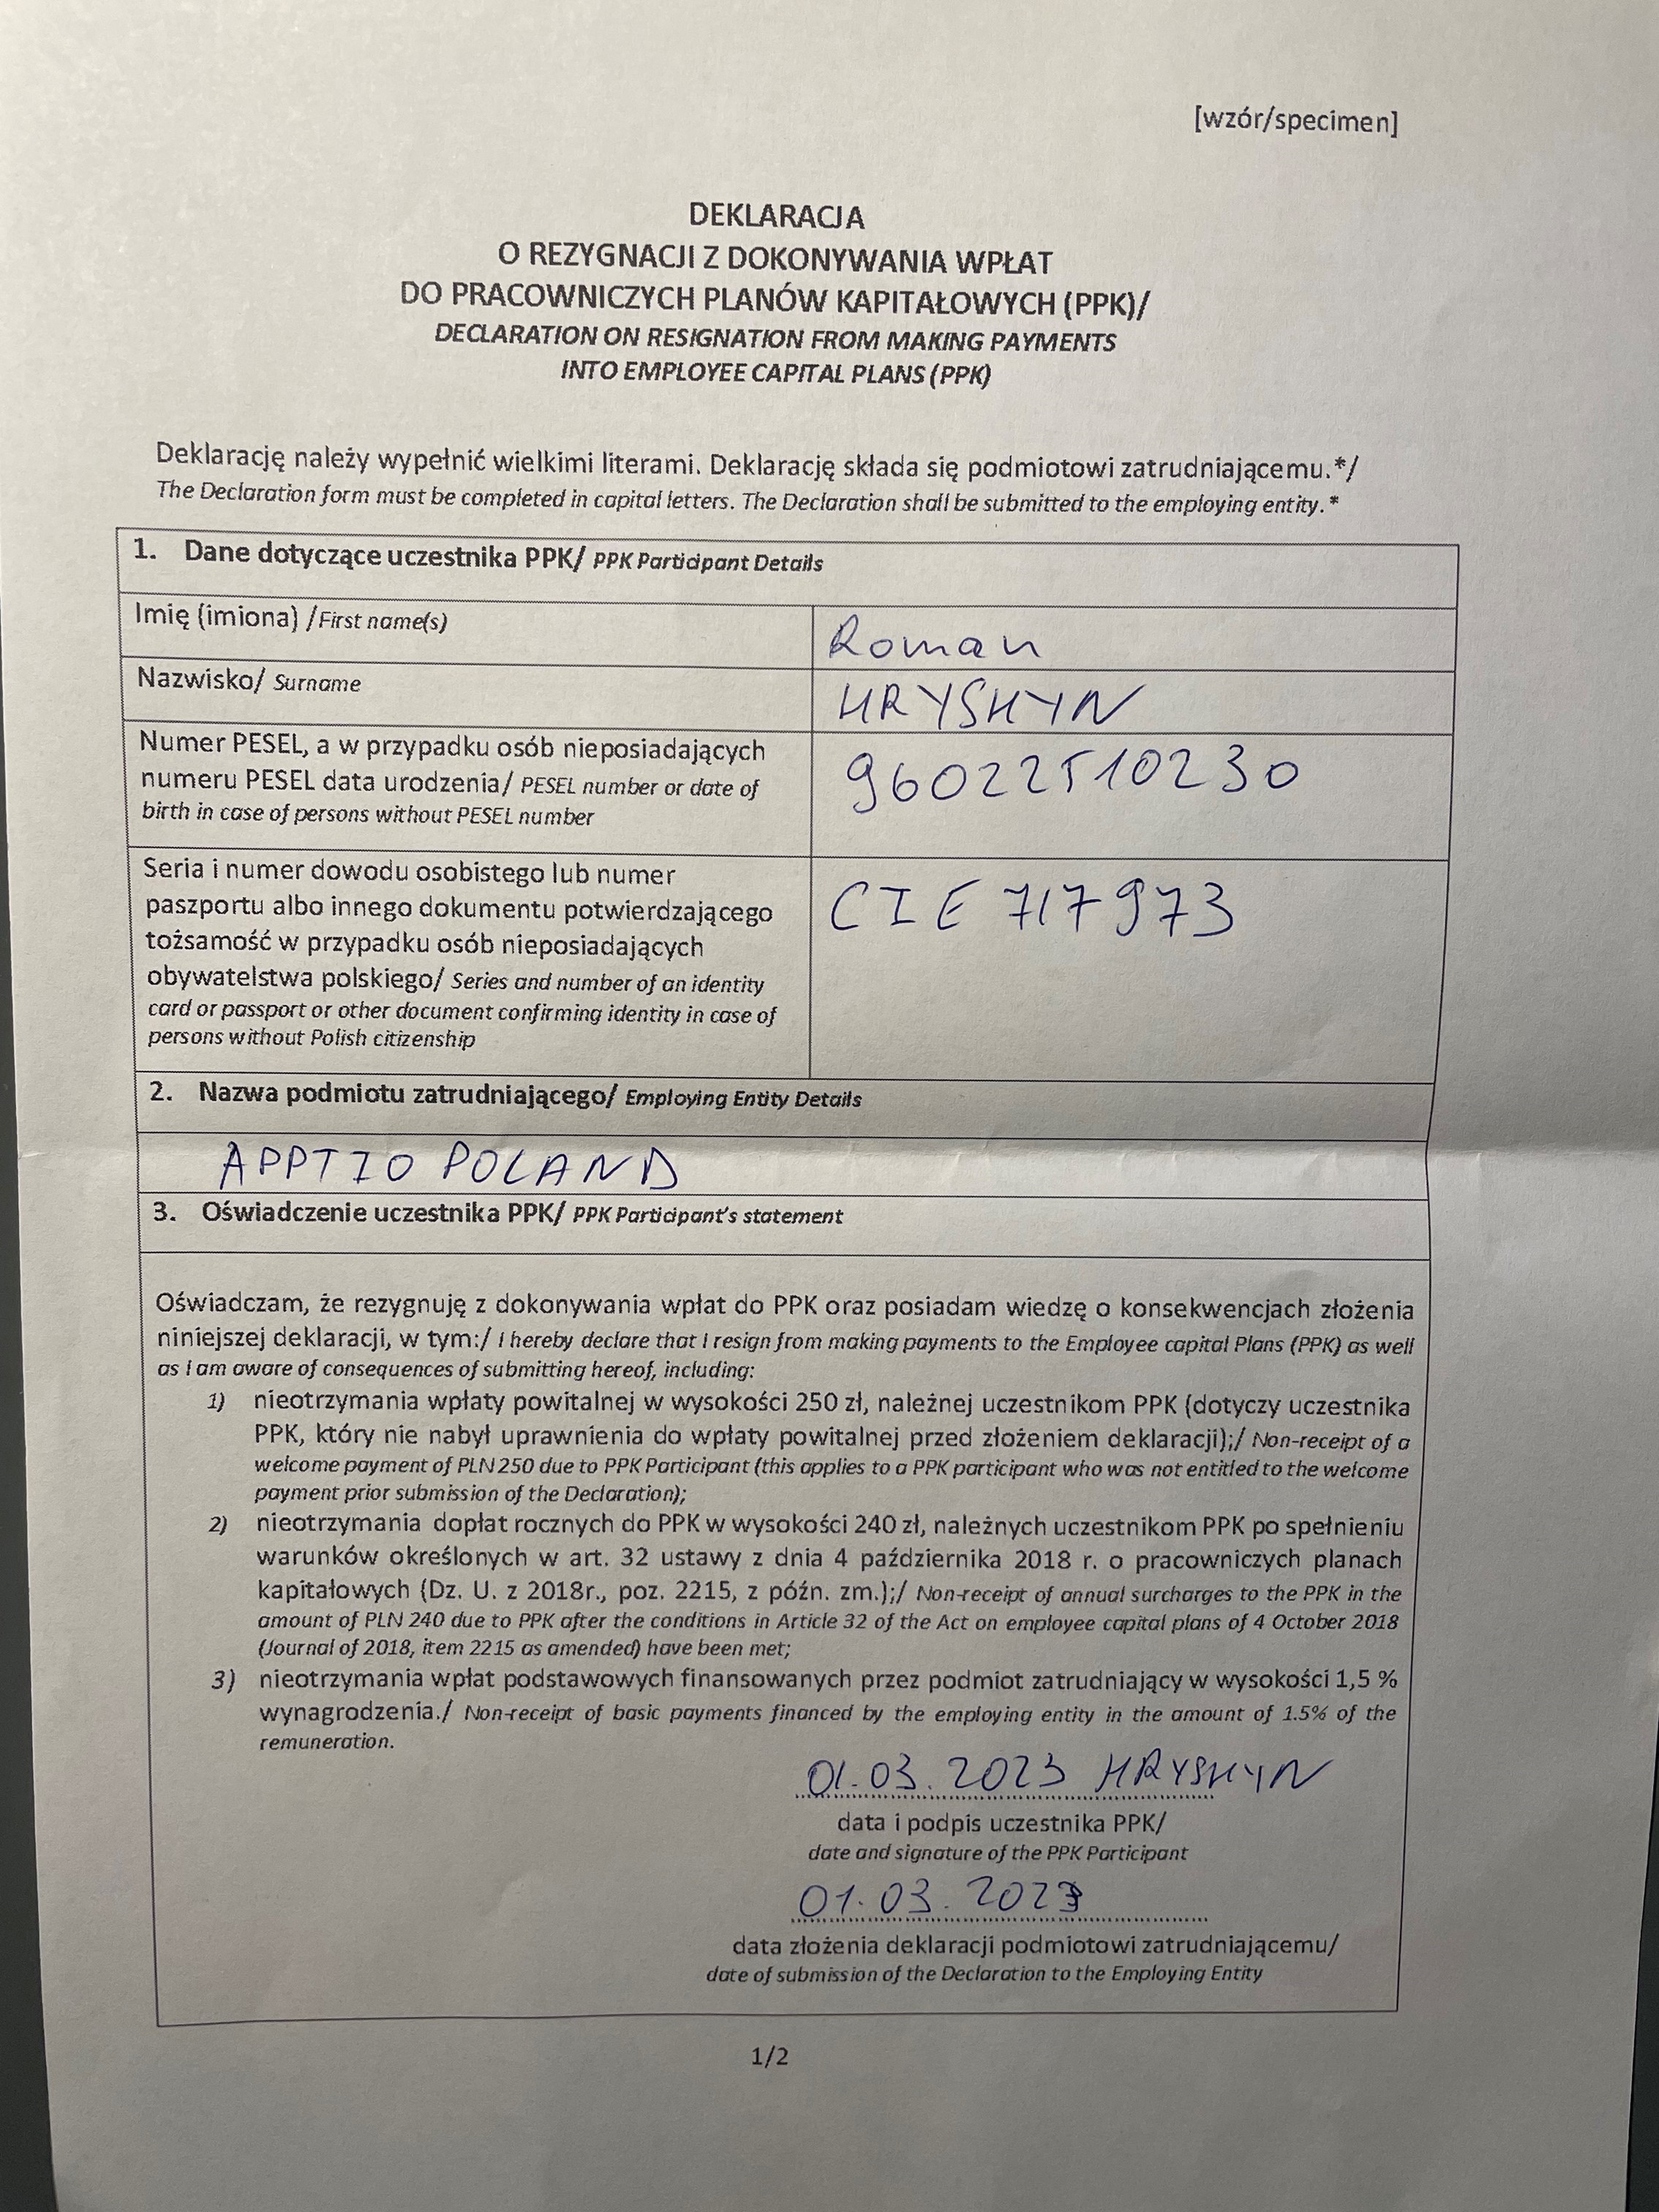 [wzór/specimen]
DEKLARACJA
O REZYGNACJI Z DOKONYWANIA WPŁAT
DO PRACOWNICZYCH PLANÓW KAPITAŁOWYCH (PPK)/
DECLARATION ON RESIGNATION FROM MAKING PAYMENTS
INTO EMPLOYEE CAPITAL PLANS (PPK)
Deklarację należy wypełnić wielkimi literami. Deklarację składa się podmiotowi zatrudniającemu.*/
The Declaration form must be completed in capital letters. The Declaration shall be submitted to the employing entity.*
1. Dane dotyczące uczestnika PPK/ PPK Participant Details
Imię (imiona) /First name(s)
Roman
Nazwisko/ Surname
HRYSHYN
Numer PESEL, a w przypadku osób nieposiadających
numeru PESEL data urodzenia/ PESEL number or date of
birth in case of persons without PESEL number
96022510230
Seria i numer dowodu osobistego lub numer
paszportu albo innego dokumentu potwierdzającego
tożsamość w przypadku osób nieposiadających
obywatelstwa polskiego/ Series and number of an identity
card or passport or other document confirming identity in case of
persons without Polish citizenship
CIE 717973
2. Nazwa podmiotu zatrudniającego/ Employing Entity Details
APPTIO POLAND
3. Oświadczenie uczestnika PPK/ PPK Participant's statement
Oświadczam, że rezygnuję z dokonywania wpłat do PPK oraz posiadam wiedzę o konsekwencjach złożenia
niniejszej deklaracji, w tym:/ I hereby declare that I resign from making payments to the Employee capital Plans (PPK) as well
as I am aware of consequences of submitting hereof, including:
1) nieotrzymania wpłaty powitalnej w wysokości 250 zł, należnej uczestnikom PPK (dotyczy uczestnika
PPK, który nie nabył uprawnienia do wpłaty powitalnej przed złożeniem deklaracji);/ Non-receipt of a
welcome payment of PLN 250 due to PPK Participant (this applies to a PPK participant who was not entitled to the welcome
payment prior submission of the Declaration);
2) nieotrzymania dopłat rocznych do PPK w wysokości 240 zł, należnych uczestnikom PPK po spełnieniu
warunków określonych w art. 32 ustawy z dnia 4 października 2018 r. o pracowniczych planach
kapitałowych (Dz. U. z 2018r., poz. 2215, z późn. zm.);/ Non-receipt of annual surcharges to the PPK in the
amount of PLN 240 due to PPK after the conditions in Article 32 of the Act on employee capital plans of 4 October 2018
(Journal of 2018, item 2215 as amended) have been met;
3) nieotrzymania wpłat podstawowych finansowanych przez podmiot zatrudniający w wysokości 1,5 %
wynagrodzenia./ Non-receipt of basic payments financed by the employing entity in the amount of 1.5% of the
remuneration.
01.03.2023 HRYSHYN
data i podpis uczestnika PPK/
date and signature of the PPK Participant
01.03.2023
data złożenia deklaracji podmiotowi zatrudniającemu/
date of submission of the Declaration to the Employing Entity
1/2